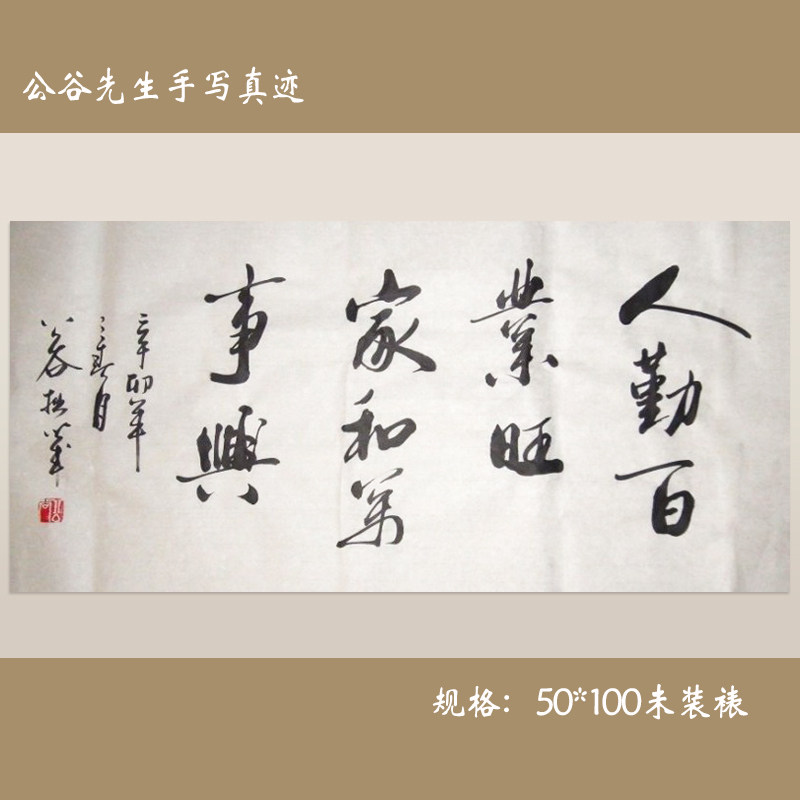 公谷先生手写真迹
人勤百
業旺
家和萬
事興
辛卯年
公谷拙筆
规格：50*100未装裱